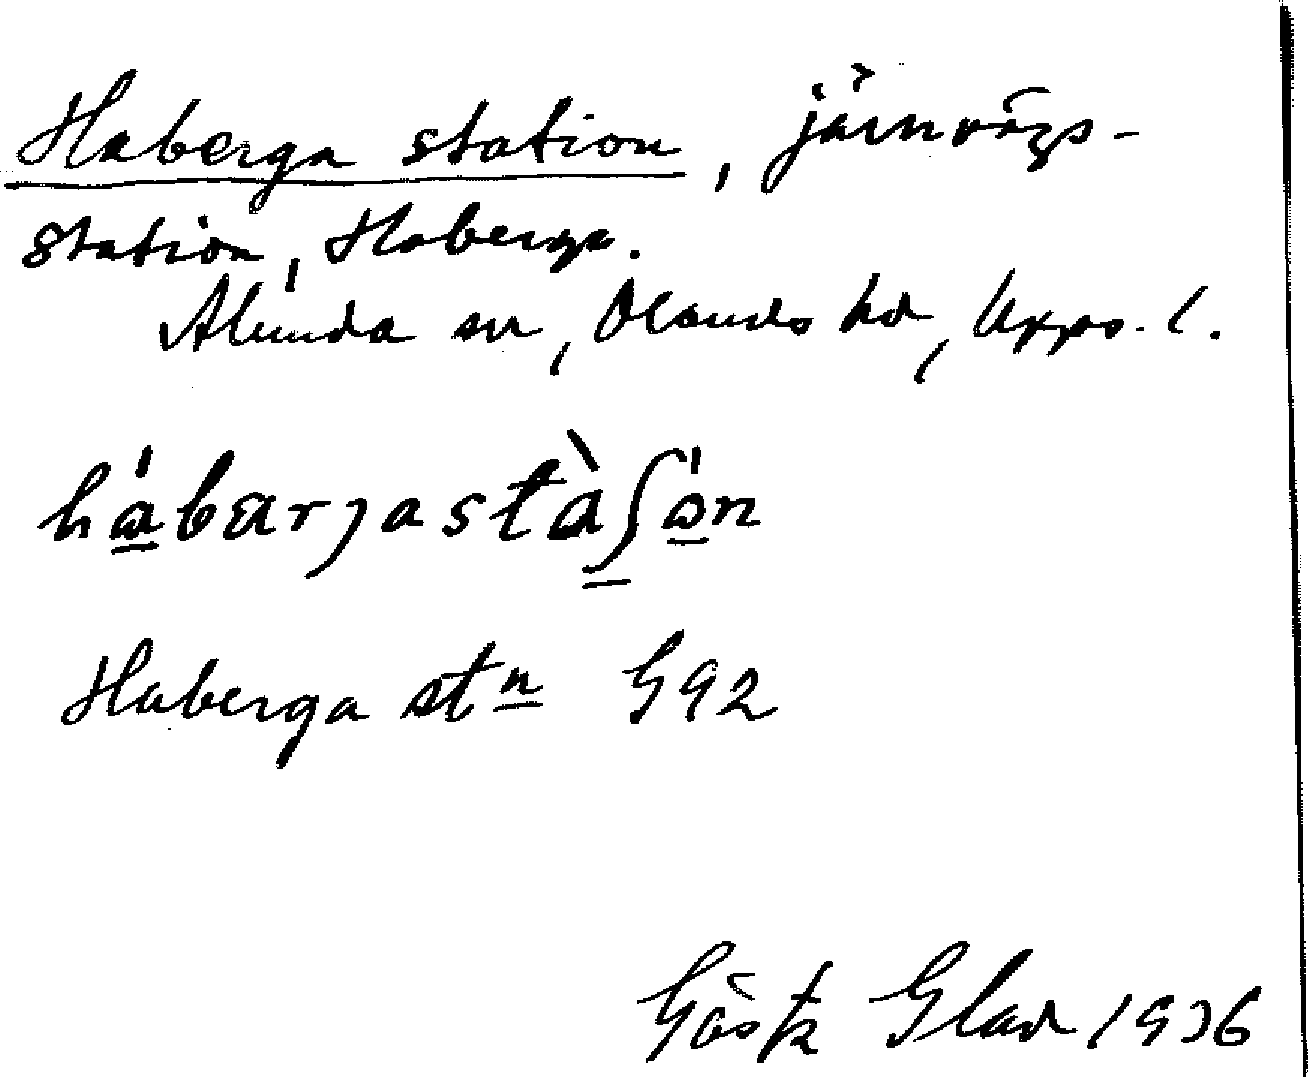 Haberga station, järnvägs-
station, Haberga.
Alunda sn, Olands hd, Upps. l.
hábarjastàʃón
Haberga stn G92
Gösta Glad 1936